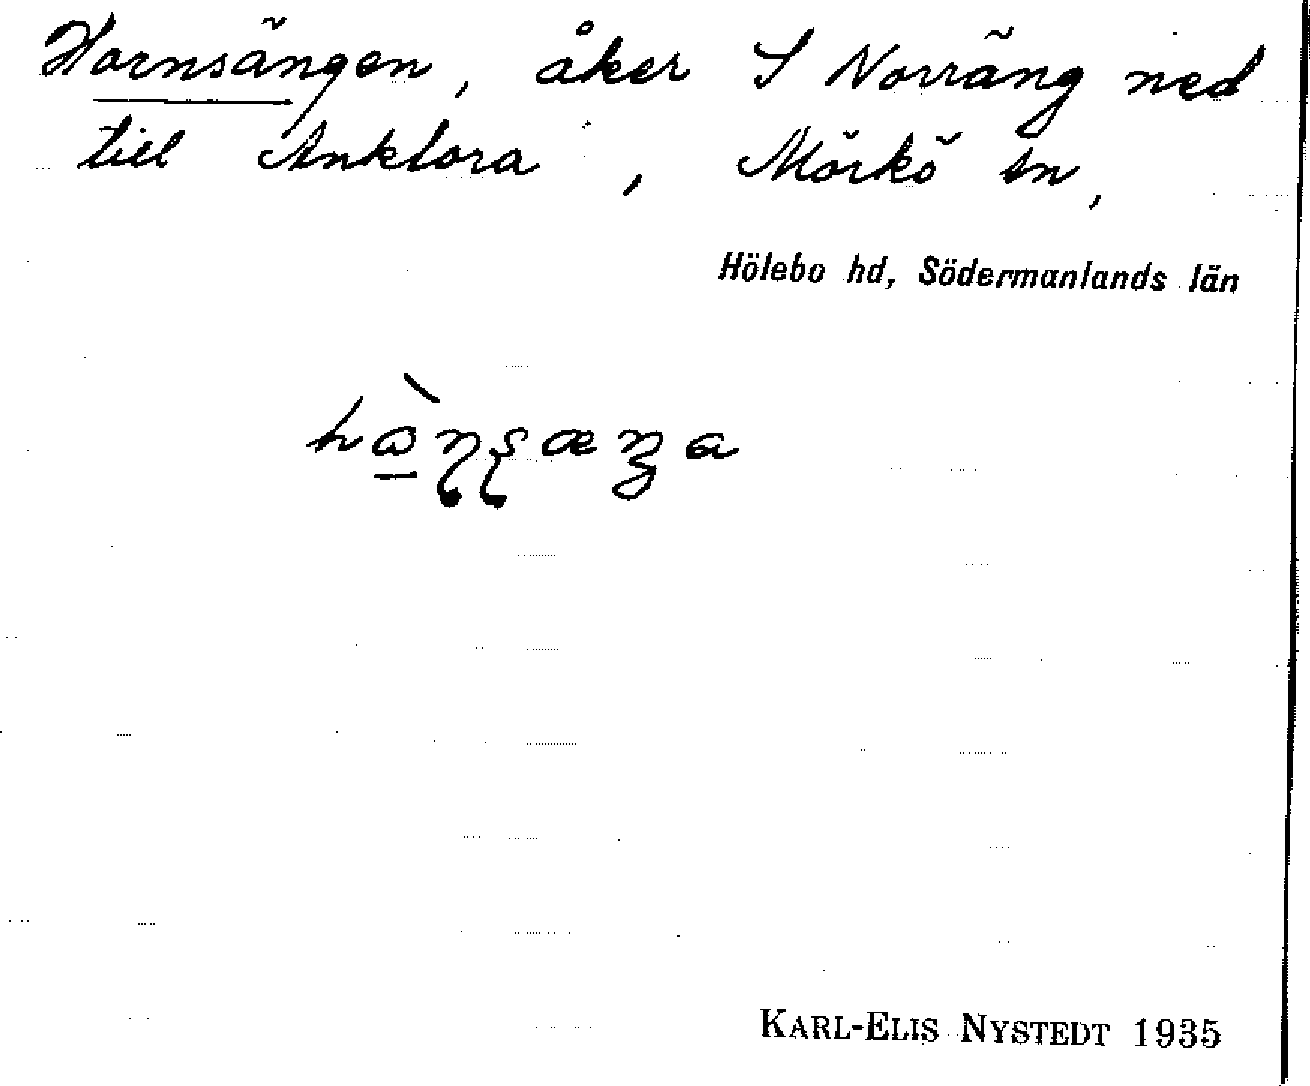 Hornsängen, åker S Norräng ned
till Anklora, Mörkö sn,
Hölebo hd, Södermanlands län
KARL-ELIS NYSTEDT 1935